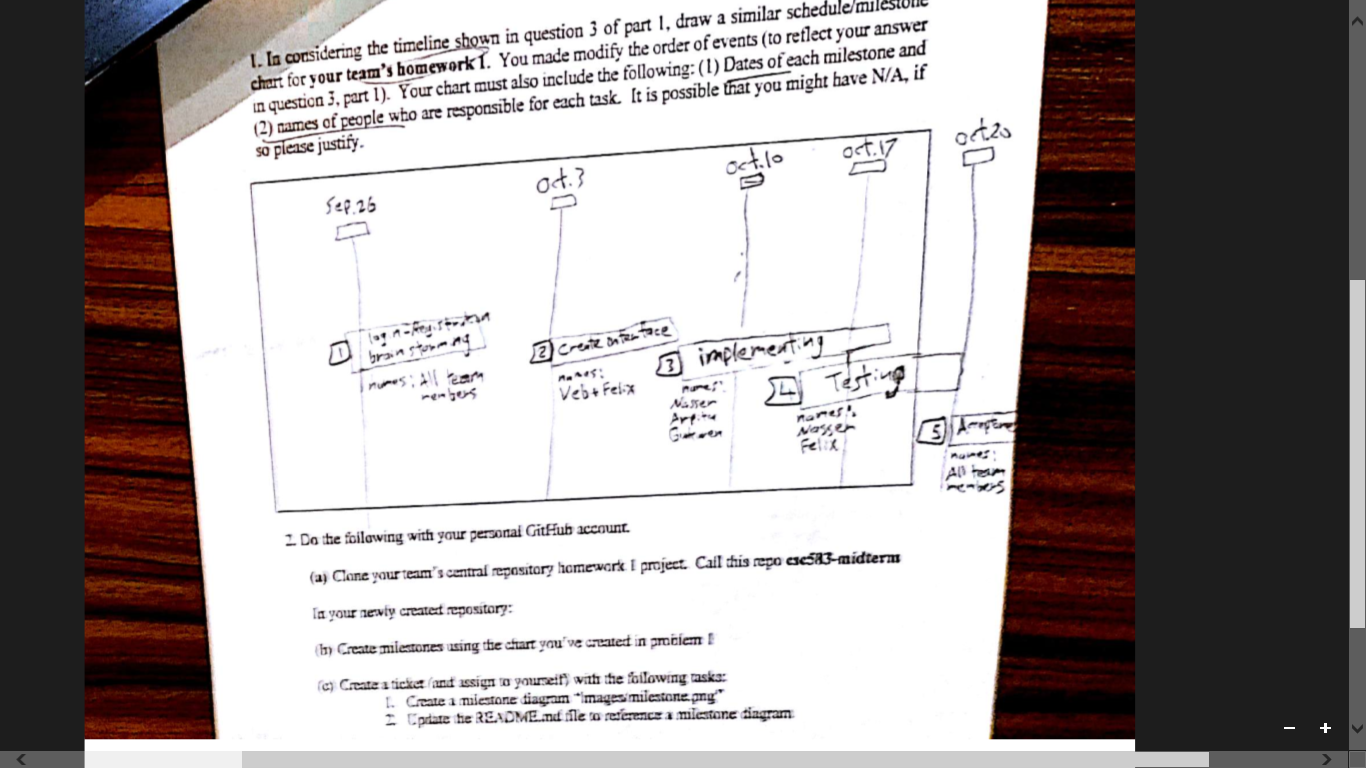 1. In considering the timeline shown in question 3 of part 1, draw a similar schedule/milestone
chart for your team's homework 1. You made modify the order of events (to reflect your answer
in question 3, part 1). Your chart must also include the following: (1) Dates of each milestone and
(2) names of people who are responsible for each task. It is possible that you might have N/A, if
so please justify.
Sep.26
Oct.3
Oct.10
Oct.17
Oct.20
1
login-Registration
brainstorming
names: All team
members
2
Create interface
names:
Veb+Felix
3
implementing
names:
Nasser
4
Testing
names:
Nasser
Felix
5
names:
All team
members
2. Do the following with your personal GitHub account.
(a) Clone your team's central repository homework 1 project. Call this repo csc583-midterm
In your newly created repository:
(b) Create milestones using the chart you've created in problem 1
(c) Create a ticket (and assign to yourself) with the following tasks:
1. Create a milestone diagram "images/milestone.png"
2. Update the README.md file to reference a milestone diagram